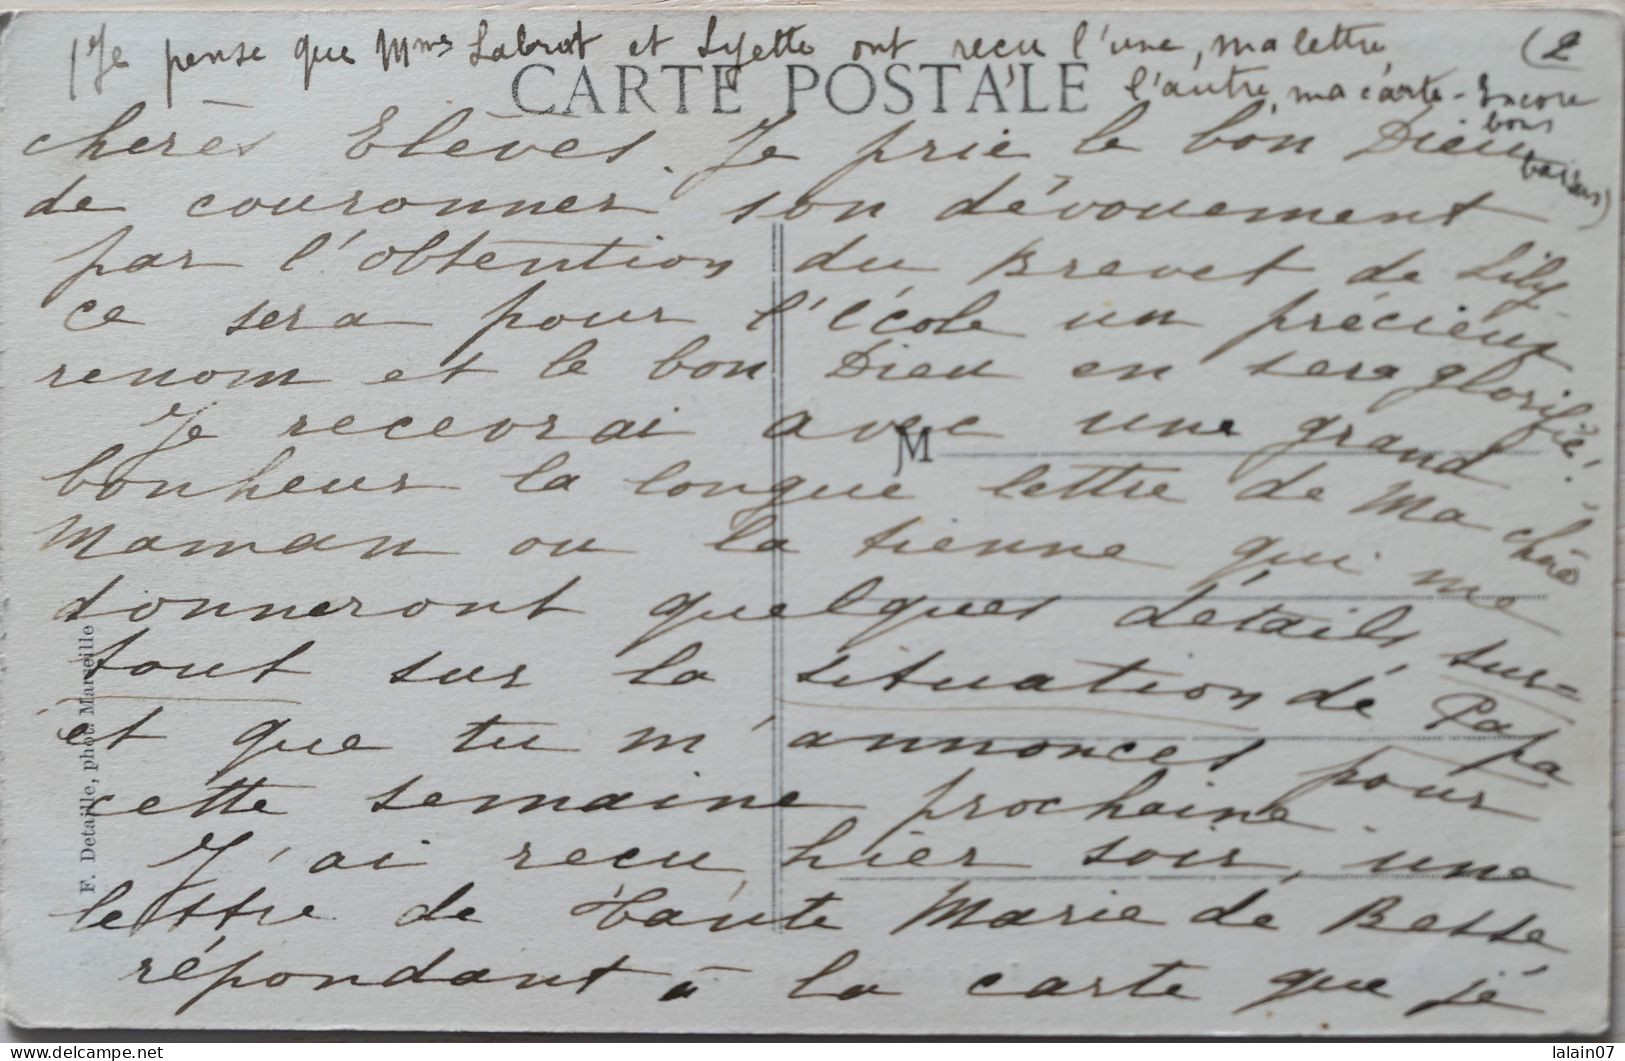 (Je pense que Mmes Labrot et Lyette ont reçu l'une, ma lettre, (2
CARTE POSTALE
l'autre, ma carte - Encore
bons
baisers)
chères Elèves. Je prie le bon Dieu
de couronner son dévouement
par l'obtention du Brevet de Lily.
ce sera pour l'école un précieux
renom et le bon Dieu en sera glorifié.
Je recevrai avec une grand
M
bonheur la longue lettre de Ma chère
Maman ou la tienne qui me
donneront quelques détails sur=
tout sur la situation de Papa
et que tu m'annonces pour
cette semaine prochaine.
J'ai reçu, hier soir, une
lettre de Marie de Besse
répondant à la carte que je
F. Detaille, phot. Marseille
lalain07